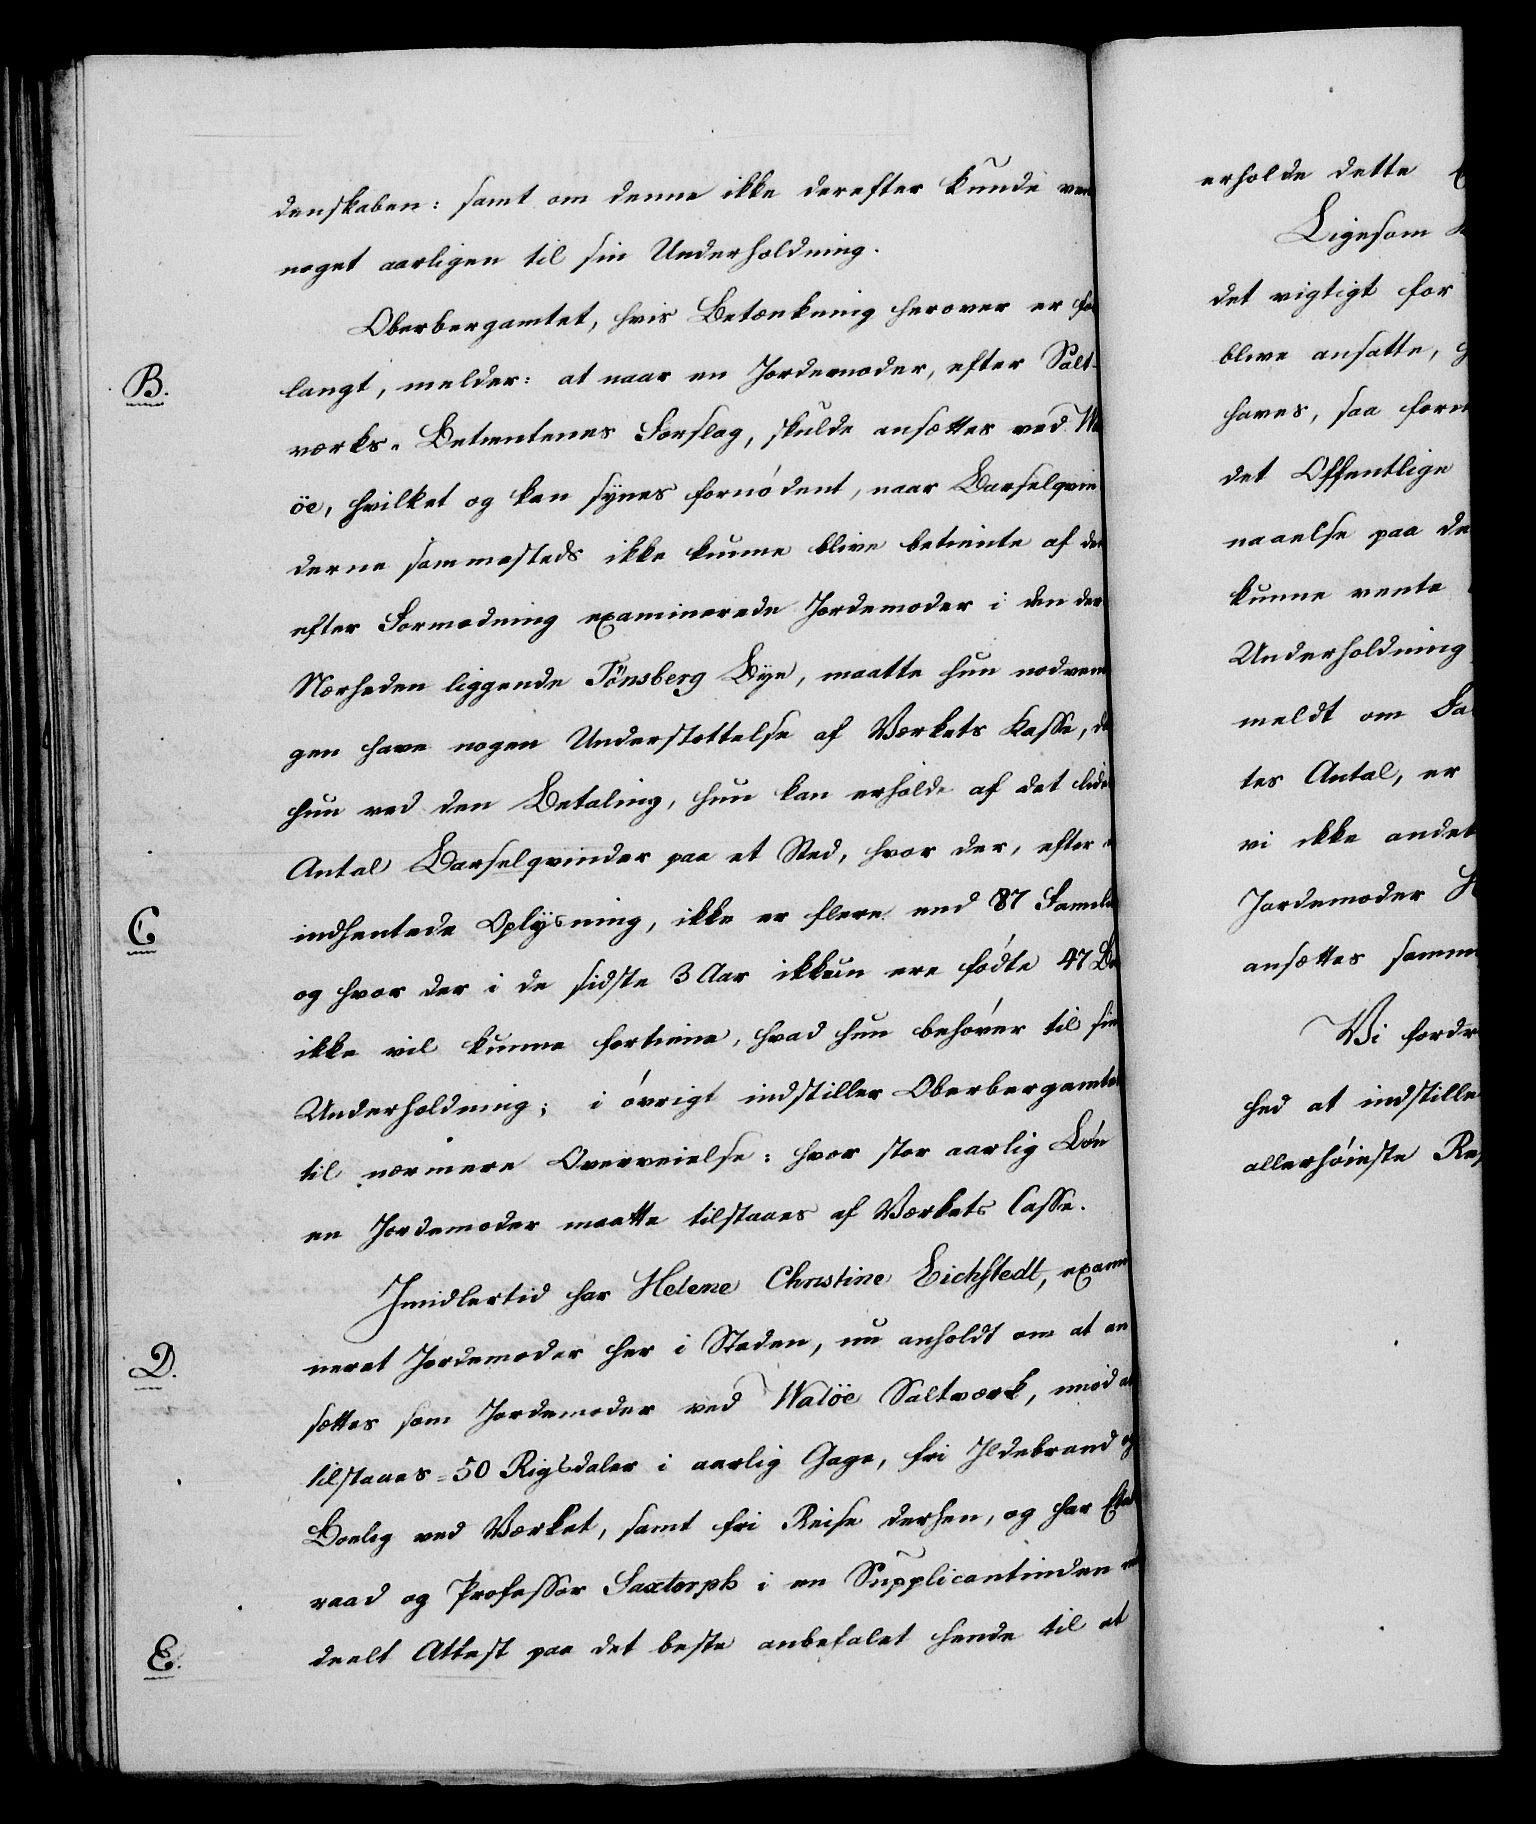 denskaben: samt om denne ikke derefter kunde
noget aarligen til sin Underholdning.
Oberbergamtet, hvis Betænkning herover er for
B.
langt, melder: at naar en Jordemoder, efter Salt-
værks-Betientenes Forslag, skulde ansættes ved Wa
öe, hvilket og kan synes fornødent, naar Barselqvin
derne sammesteds ikke kunne blive betiente af den
efter Formodning examinerede Jordemoder i den der
Nærheden liggende Tönsberg Bye, maatte hun nødven
gen have nogen Understøttelse af Værkets Kasse, da
hun ved den Betaling, hun kan erholde af det lide
Antal Barselqvinder paa et Sted, hvor der, efter
C
indhentede Oplysning, ikke er flere end 87 Famili
og hvor der i de sidste 3 Aar ikkun ere födte 47 Bø
ikke vil kunne fortiene, hvad hun behöver til sin
Underholdning; i övrigt indstiller Oberbergamtet
til nærmere Overveielse: hvor stor aarlig Lön
en Jordemoder maatte tilstaaes af Værkets Casse.
Imidlertid har Helene Christine Eichstedt, exami
D.
neret Jordemoder her i Staden, nu anholdt om at an
sættes som Jordemoder ved Walöe Saltværk, imod at
tilstaaes 50 Rigsdaler i aarlig Gage, fri Ildebrand og
Boelig ved Værket, samt fri Reise derhen, og har Etats
raad og Professor Saxtorph i en Supplicantinden med
E.
deelt Attest paa det beste anbefalet hende til at
erholde dette
Ligesom
det vigtigt for
blive ansatte,
haves, saa
det Offentlige
naaelse paa de
kunne vente
Underholdning
meldt om Fa
tes Antal, er
vi ikke andet
Jordemoder H
ansættes samm
Vi fordr
hed at indstille
allerhöieste Re